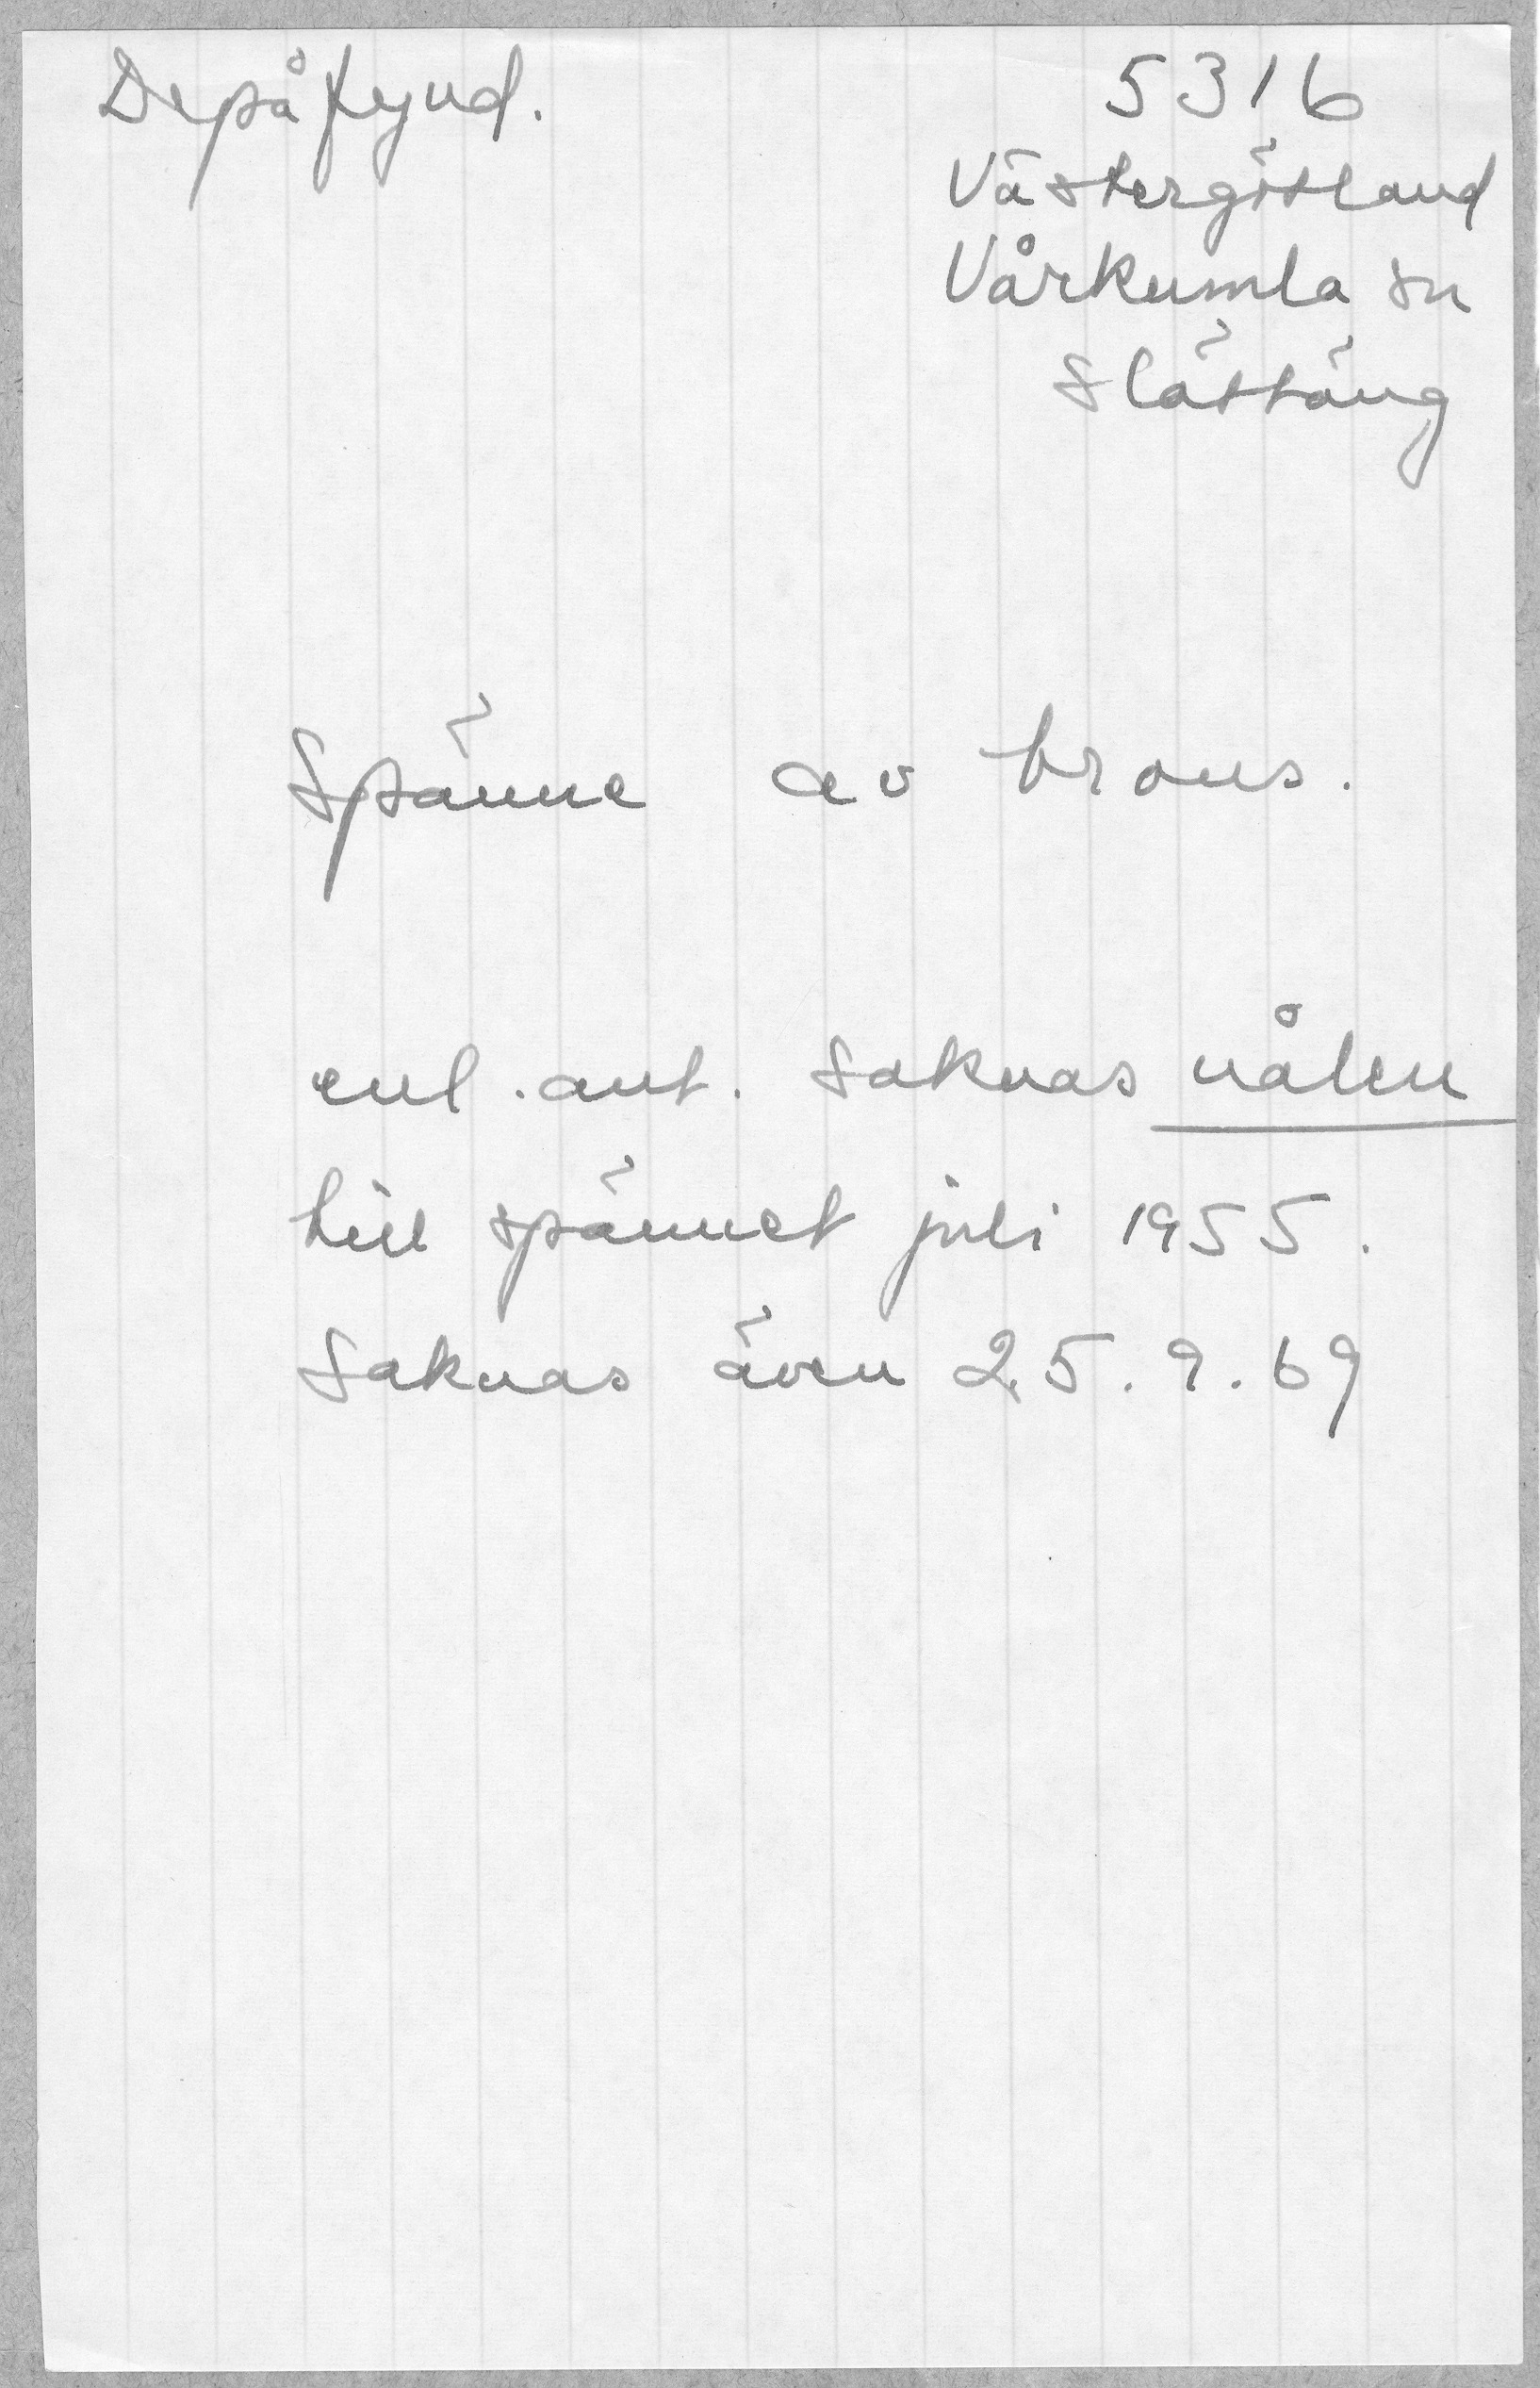 Depåfynd.
5316
Västergötland
Vårkumla sn
Slättäng
Spänne av brons.
enl. ant. saknas nålen
till spännet juli 1955.
Saknas även 25.9.69